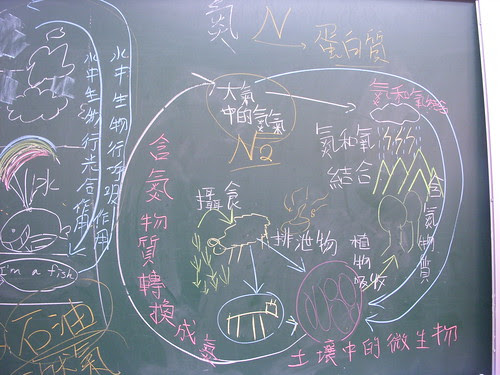 氮 N → 蛋白質
大氣
中的氮氣
N2
氮和氧
結合
含氮物質轉換成氮
攝食
排泄物
植物吸收
含氮物質
土壤中的微生物
水中生物行呼吸作用
水中生物行光合作用
水
I'm a fish
石油
氣